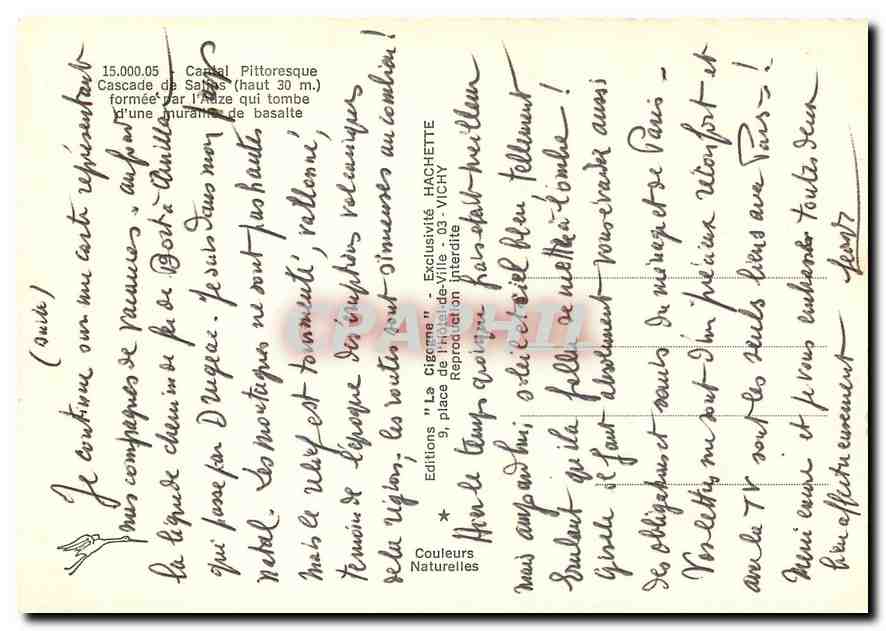 15.000.05 - Cantal Pittoresque
Cascade de Salins (haut 30 m.)
formée par l'Auze qui tombe
d'une muraille de basalte
(suite)
Je continue sur une carte représentant
mes compagnes de vacances. aujourd'
la ligne de chemin de fer de Bort à
qui passe par Drugeac. Je suis dans mon pays
natal. Les montagnes ne sont pas hautes
mais le relief est tourmenté, vallonné,
témoin de l'époque des éruptions volcaniques
de la région, les routes sont sinueuses au combien !
Editions "La Cigogne" - Exclusivité HACHETTE
9, place de l'Hôtel-de-Ville - 03 - VICHY
Reproduction interdite
Couleurs
Naturelles
CPAPHIL
Hier le temps quoique frais était meilleur
mais aujourd'hui, soleil et ciel bleu tellement
brulant qu'il a fallu se mettre à l'ombre !
Gisèle il faut absolument vous évader aussi
des obligations et soucis du ménage et de Paris -
Vos lettres me sont d'un précieux réconfort et
avec la TV sont les seuls liens avec Paris - !
Merci encore et je vous embrasse toutes deux
bien affectueusement